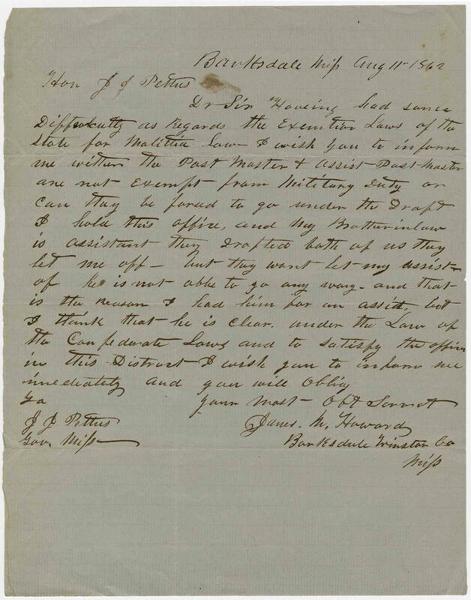 Barksdale Miss Aug 11 1862
Hon J J Pettus
Dr Sir Haveing had some
Diffuculty as regards the Exemtion Laws of the
State for Malitua Law I wish you to inform
me withur the Post Master & Assist Post Master
are not Exempt from Military Duty or
can they be forced to go under the Draft
I hold this office, and my Brotherinlaw
is assistant they Drafted both of us they
let me off - but they want let my assist
off he is not able to go any way - and that
is the reason I had him for an assist, but
I think that he is clear under the Law of
the Confederate Laws and to Satisfy the officer
in this District I wish you to inform me
immediately and you will Oblig
Your most Obt Servnt
To
J J Pettus
Gov. Miss
James. M. Howard
Barksdale Winston Co
Miss